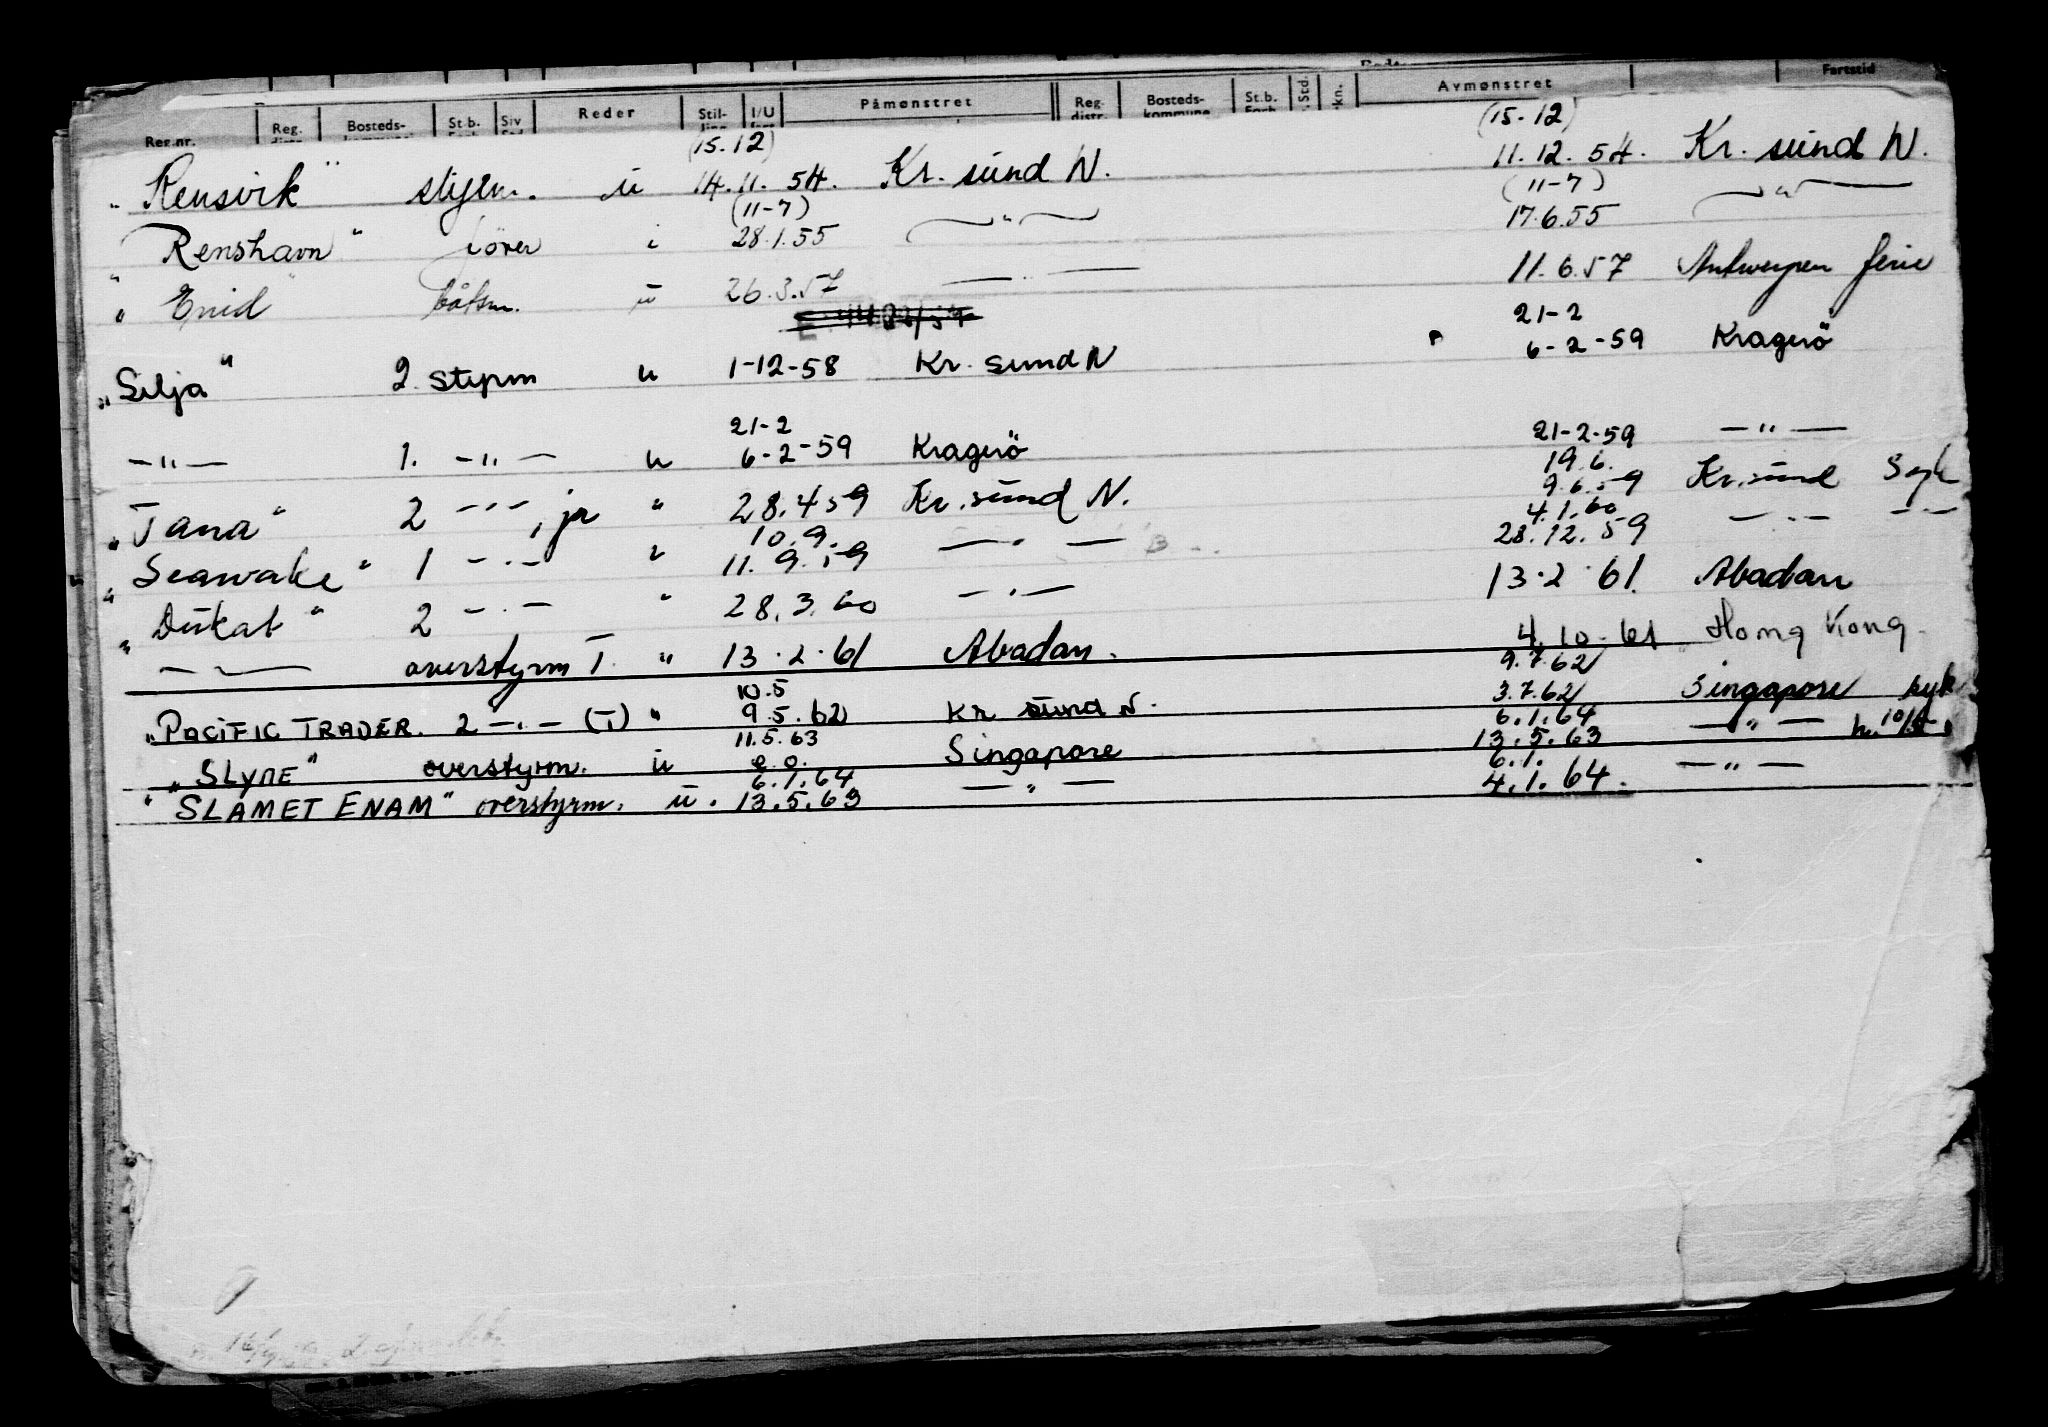 Fartstid
Reg.nr. Reg. Bosteds- St.b. Siv Reder Stil- I/U Påmønstret Reg. Bosteds- St.b. Std. Avmønstret
(15.12) (15-12)
"Rensvik" styrm. u 14.11.54. Kr.sund N. 11.12.54. Kr.sund N.
(11-7) (11-7)
"Renshavn" fører i 28.1.55 — " — 17.6.55 — " —
"Enid" båtsm. u 26.3.57 — " — 11.6.57 Antwerpen ferie
21-2
"Silja" 2. styrm u 1-12-58 Kr. sund N 6-2-59 Kragerö
21-2
— " — 1. — " — u 6-2-59 Kragerö 21-2-59 — " —
19.6.
"Tana" 2 — " —, jr " 28.4.59 Kr.sund N. 9.6.59 Kr.sund Syk
10.9. 4.1.60
"Seawake" 1 — " — " 11.9.59 — " — 28.12.59 — " — — " —
"Dukat" 2 — " — " 28.3.60 — " — 13.2.61. Abadan
— " — overstyrm I. " 13.2.61 Abadan. 4.10.61 Hong Kong.
10.5 9.7.62
"PACIFIC TRADER. 2 — " — (I) " 9.5.62 Kr sund N. 3.7.62 Singapore syk
11.5.63 6.1.64
"SLYNE" overstyrm. u Singapore 13.5.63 — " —
6.1.64 6.1.
"SLAMET ENAM" overstyrm. u. 13.5.63 — " — 4.1.64. — " —